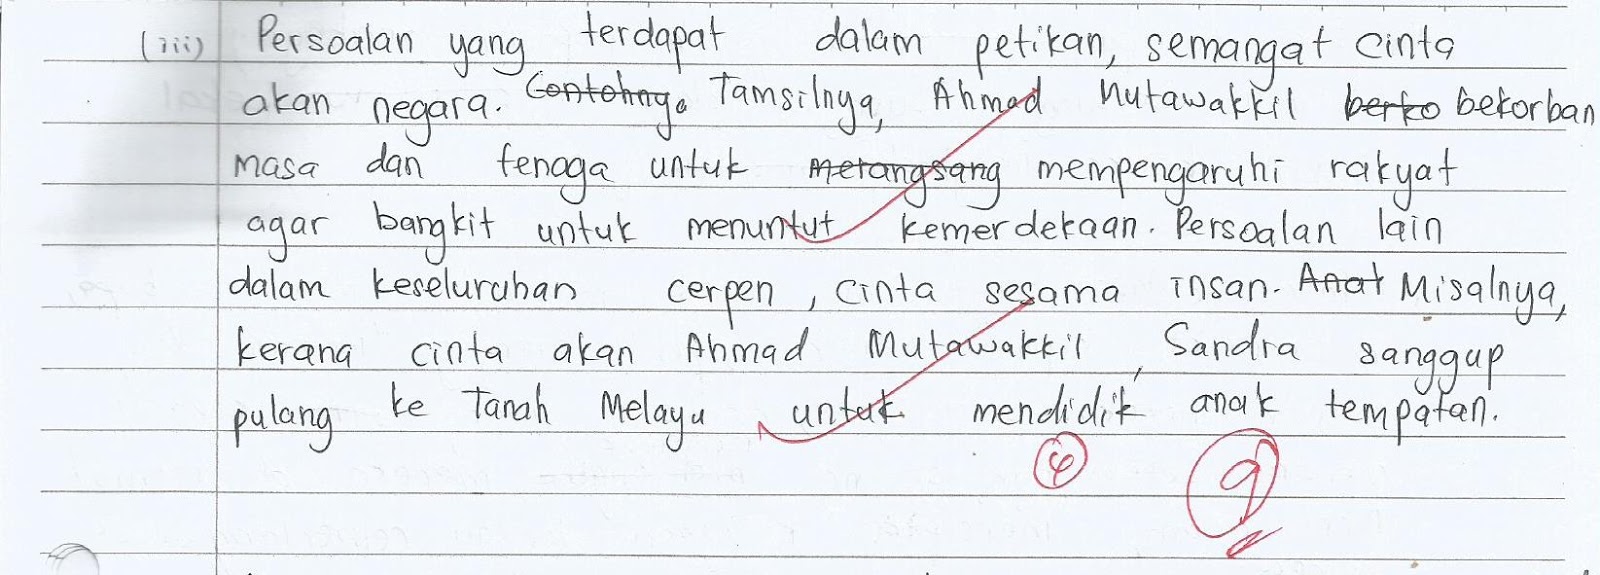 (iii) Persoalan yang terdapat dalam petikan, semangat cinta
akan negara. Contohnya Tamsilnya, Ahmad Mutawakkil berko bekorban
masa dan tenaga untuk merangsang mempengaruhi rakyat
agar bangkit untuk menuntut kemerdekaan. Persoalan lain
dalam keseluruhan cerpen, cinta sesama insan. Anat Misalnya,
kerana cinta akan Ahmad Mutawakkil, Sandra sanggup
pulang ke Tanah Melayu untuk mendidik anak tempatan.
4 9